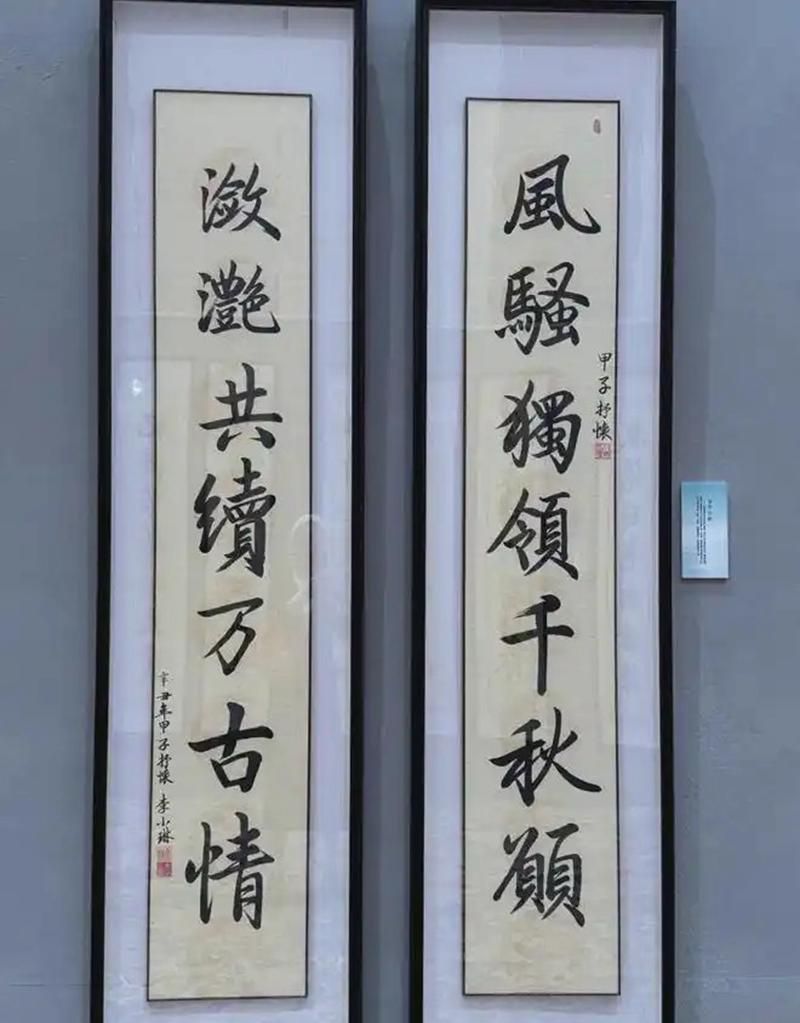 風騷獨領千秋願
甲子抒懷
瀲灧共續万古情
辛丑年甲子抒懷 李小琳